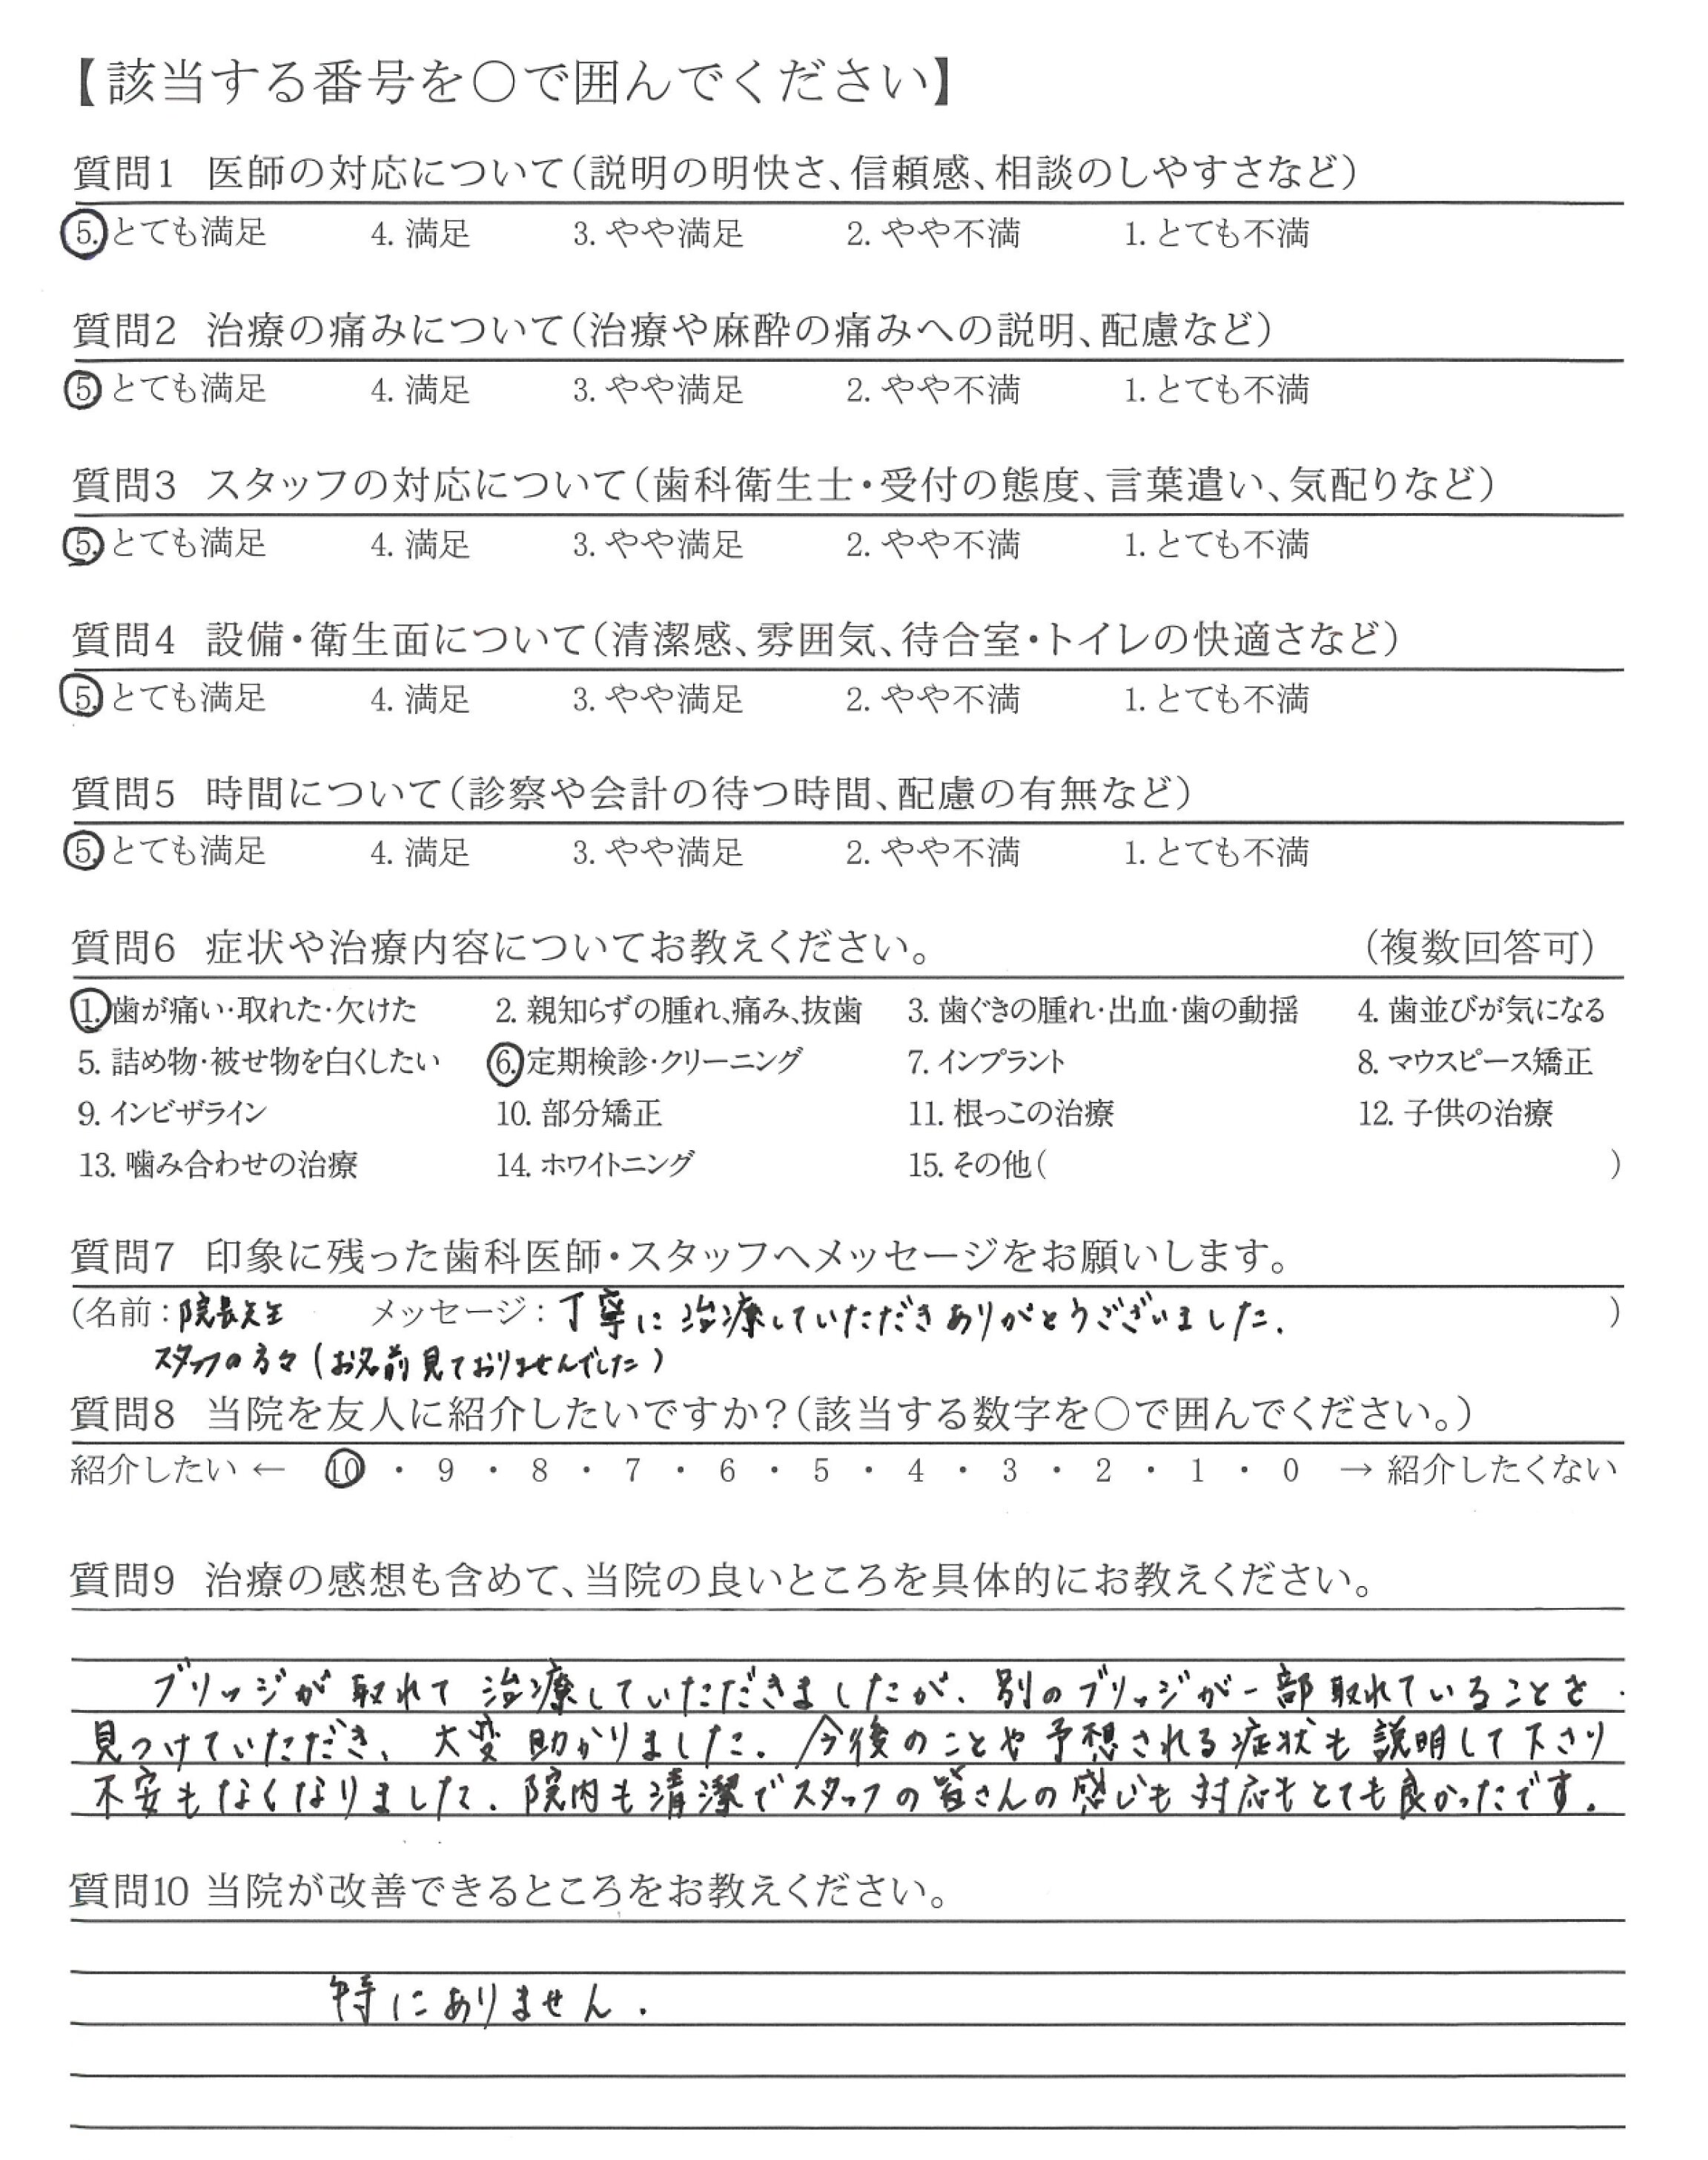 【該当する番号を○で囲んでください】
質問1 医師の対応について(説明の明快さ、信頼感、相談のしやすさなど)
5. とても満足 4. 満足 3. やや満足 2. やや不満 1. とても不満
質問2 治療の痛みについて(治療や麻酔の痛みへの説明、配慮など)
5. とても満足 4. 満足 3. やや満足 2. やや不満 1. とても不満
質問3 スタッフの対応について(歯科衛生士・受付の態度、言葉遣い、気配りなど)
5. とても満足 4. 満足 3. やや満足 2. やや不満 1. とても不満
質問4 設備・衛生面について(清潔感、雰囲気、待合室・トイレの快適さなど)
5. とても満足 4. 満足 3. やや満足 2. やや不満 1. とても不満
質問5 時間について(診察や会計の待つ時間、配慮の有無など)
5. とても満足 4. 満足 3. やや満足 2. やや不満 1. とても不満
質問6 症状や治療内容についてお教えください。 (複数回答可)
1. 歯が痛い・取れた・欠けた 2. 親知らずの腫れ、痛み、抜歯 3. 歯ぐきの腫れ・出血・歯の動揺 4. 歯並びが気になる
5. 詰め物・被せ物を白くしたい 6. 定期検診・クリーニング 7. インプラント 8. マウスピース矯正
9. インビザライン 10. 部分矯正 11. 根っこの治療 12. 子供の治療
13. 噛み合わせの治療 14. ホワイトニング 15. その他( )
質問7 印象に残った歯科医師・スタッフへメッセージをお願いします。
(名前：院長先生 メッセージ：丁寧に治療していただきありがとうございました. )
スタッフの方々(お名前見ておりませんでした)
質問8 当院を友人に紹介したいですか？(該当する数字を○で囲んでください。)
紹介したい ← 10 ・ 9 ・ 8 ・ 7 ・ 6 ・ 5 ・ 4 ・ 3 ・ 2 ・ 1 ・ 0 → 紹介したくない
質問9 治療の感想も含めて、当院の良いところを具体的にお教えください。
ブリッジが取れて治療していただきましたが、別のブリッジが一部取れていることを
見つけていただき、大変助かりました. 今後のことや予想される症状も説明して下さり
不安もなくなりました. 院内も清潔でスタッフの皆さんの感じも対応もとても良かったです.
質問10 当院が改善できるところをお教えください。
特にありません.